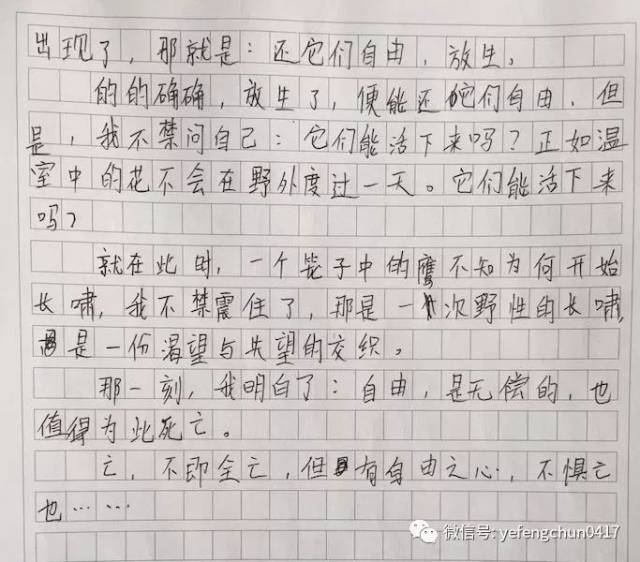 出现了，那就是：还它们自由，放生。
的的确确，放生了，便能还它们自由，但
是，我不禁问自己：它们能活下来吗？正如温
室中的花不会在野外度过一天。它们能活下来
吗？
就在此时，一个笼子中的鹰不知为何开始
长啸，我不禁震住了，那是一次野性的长啸，
是一份渴望与失望的交织。
那一刻，我明白了：自由，是无偿的，也
值得为此死亡。
亡，不即全亡，但有自由之心，不惧亡
也……
微信号: yefengchun0417